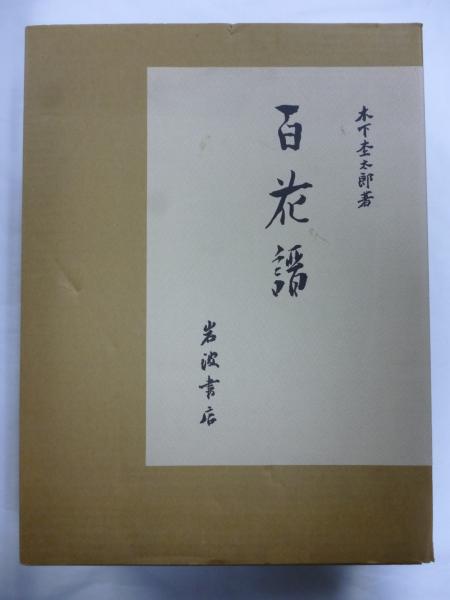 木下杢太郎著
百花譜
岩波書店